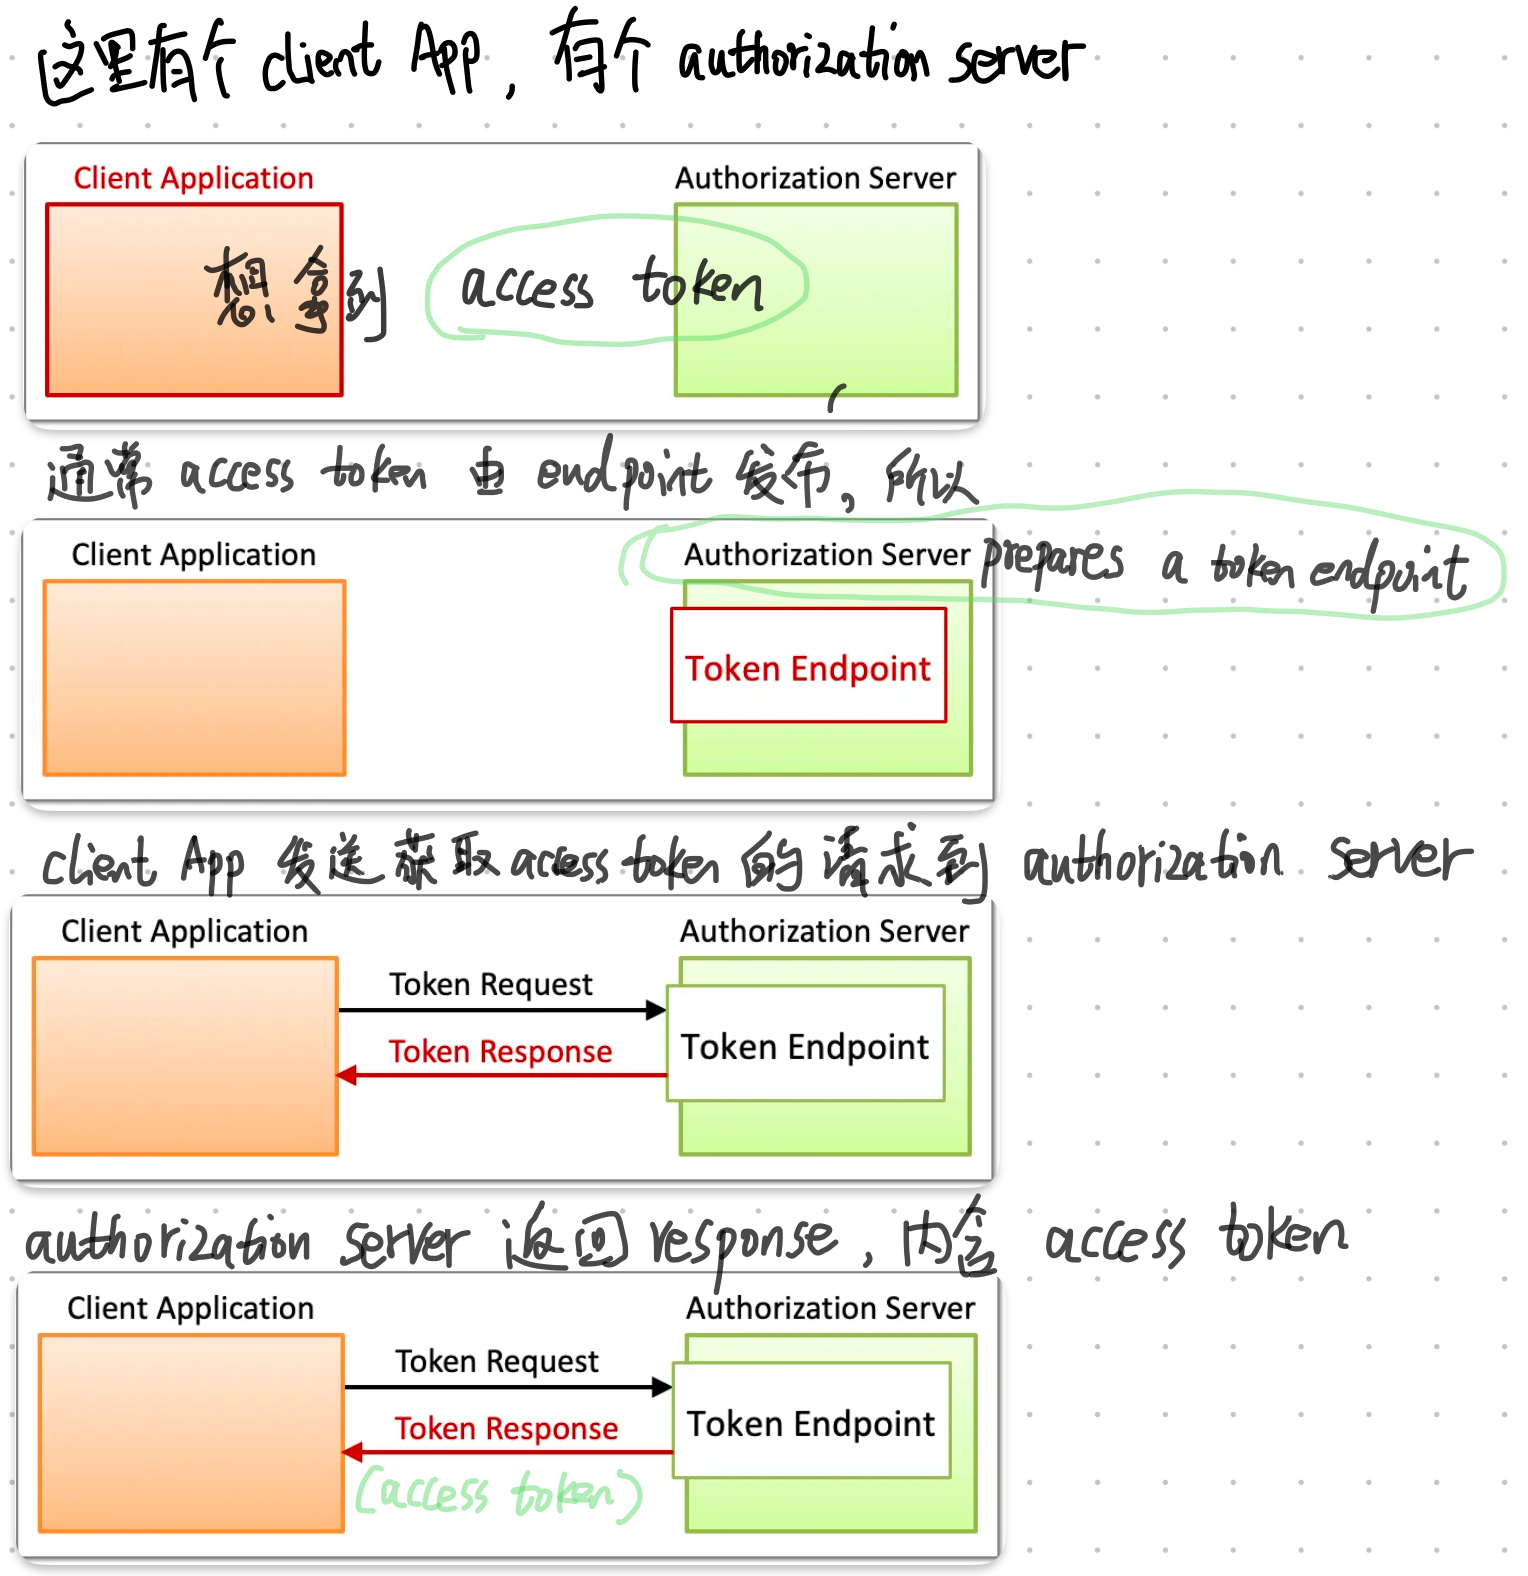 这里有个 client App, 有个 authorization server
Client Application
Authorization Server
想拿到 access token
通常 access token 由 endpoint 发布, 所以
Client Application
Authorization Server prepares a token endpoint
Token Endpoint
client App 发送获取 access token 的请求到 authorization server
Client Application
Authorization Server
Token Request
Token Response
Token Endpoint
authorization server 返回 response, 内含 access token
Client Application
Authorization Server
Token Request
Token Response
Token Endpoint
(access token)